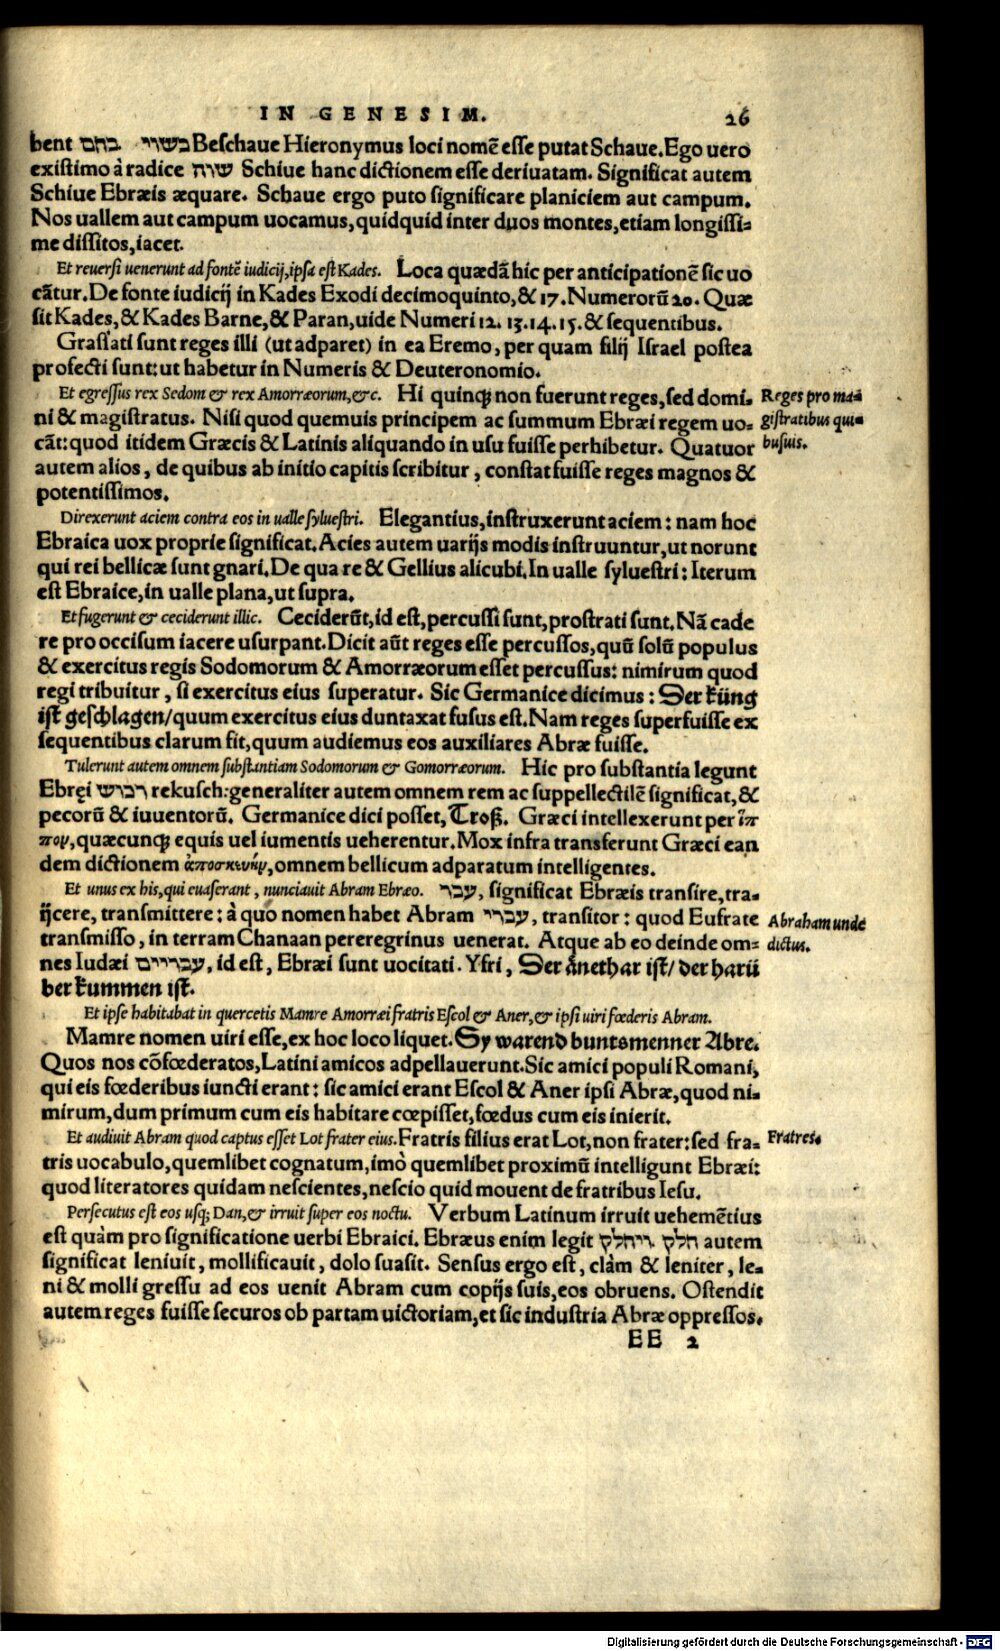 IN GENESIM. 26
bent בשוי בהם Beschaue Hieronymus loci nomẽ esse putat Schaue. Ego uero
existimo à radice שוה Schiue hanc dictionem esse deriuatam. Significat autem
Schiue Ebræis æquare. Schaue ergo puto significare planiciem aut campum.
Nos uallem aut campum uocamus, quidquid inter duos montes, etiam longissi=
me dissitos, iacet.
Et reuersi uenerunt ad fontẽ iudicij, ipsa est Kades. Loca quædã hic per anticipationẽ sic uo
cãtur. De fonte iudicij in Kades Exodi decimoquinto, & 17. Numerorũ 20. Quæ
sit Kades, & Kades Barne, & Paran, uide Numeri 12. 13. 14. 15. & sequentibus.
Grassati sunt reges illi (ut adparet) in ea Eremo, per quam filij Israel postea
profecti sunt: ut habetur in Numeris & Deuteronomio.
Et egressus rex Sedom & rex Amorræorum, &c. Hi quinq; non fuerunt reges, sed domi- Reges pro ma=
ni & magistratus. Nisi quod quemuis principem ac summum Ebræi regem uo= gistratibus qui=
cãt: quod itidem Græcis & Latinis aliquando in usu fuisse perhibetur. Quatuor busuis.
autem alios, de quibus ab initio capitis scribitur, constat fuisse reges magnos &
potentissimos.
Direxerunt aciem contra eos in ualle syluestri. Elegantius, instruxerunt aciem: nam hoc
Ebraica uox proprie significat. Acies autem uarijs modis instruuntur, ut norunt
qui rei bellicæ sunt gnari. De qua re & Gellius alicubi. In ualle syluestri: Iterum
est Ebraice, in ualle plana, ut supra.
Et fugerunt & ceciderunt illic. Ceciderũt, id est, percussi sunt, prostrati sunt. Nã cade
re pro occisum iacere usurpant. Dicit aũt reges esse percussos, quũ solũ populus
& exercitus regis Sodomorum & Amorræorum esset percussus: nimirum quod
regi tribuitur, si exercitus eius superatur. Sic Germanice dicimus: Der küng
ist geschlagen/ quum exercitus eius duntaxat fusus est. Nam reges superfuisse ex
sequentibus clarum fit, quum audiemus eos auxiliares Abræ fuisse.
Tulerunt autem omnem substantiam Sodomorum & Gomorræorum. Hic pro substantia legunt
Ebręi רכוש rekusch: generaliter autem omnem rem ac suppellectilẽ significat, &
pecorũ & iuuentorũ. Germanice dici posset, Troß. Græci intellexerunt per ἵπ
πον, quæcunq; equis uel iumentis ueherentur. Mox infra transferunt Græci ean
dem dictionem ἀποσκευὴν, omnem bellicum adparatum intelligentes.
Et unus ex his, qui euaserant, nunciauit Abram Ebræo. עבר, significat Ebræis transire, tra=
ijcere, transmittere: à quo nomen habet Abram עברי, transitor: quod Eufrate Abraham unde
transmisso, in terram Chanaan pereregrinus uenerat. Atque ab eo deinde om= dictus.
nes Iudæi עבריים, id est, Ebræi sunt uocitati. Yfri, Der ånethar ist/ der harü
ber kummen ist.
Et ipse habitabat in quercetis Mamre Amorræi fratris Escol & Aner, & ipsi uiri fœderis Abram.
Mamre nomen uiri esse, ex hoc loco liquet. Sy warend buntsmenner Abre.
Quos nos cõfœderatos, Latini amicos adpellauerunt. Sic amici populi Romani,
qui eis fœderibus iuncti erant: sic amici erant Escol & Aner ipsi Abræ, quod ni=
mirum, dum primum cum eis habitare cœpisset, fœdus cum eis inierit.
Et audiuit Abram quod captus esset Lot frater eius. Fratris filius erat Lot, non frater: sed fra= Fratres.
tris uocabulo, quemlibet cognatum, imò quemlibet proximũ intelligunt Ebræi:
quod literatores quidam nescientes, nescio quid mouent de fratribus Iesu.
Persecutus est eos usq; Dan, & irruit super eos noctu. Verbum Latinum irruit uehemẽtius
est quàm pro significatione uerbi Ebraici. Ebræus enim legit ויחלק. חלק autem
significat leniuit, mollificauit, dolo suasit. Sensus ergo est, clàm & leniter, le=
ni & molli gressu ad eos uenit Abram cum copijs suis, eos obruens. Ostendit
autem reges fuisse securos ob partam uictoriam, et sic industria Abræ oppressos.
EE 2
Digitalisierung gefördert durch die Deutsche Forschungsgemeinschaft - DFG